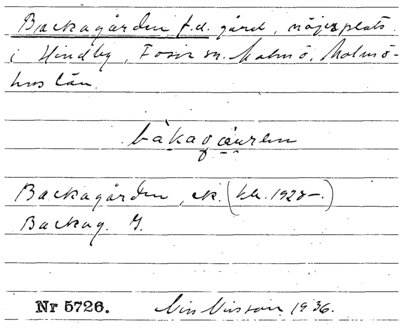 Backagården f.d. gård, nöjesplats
i Hindby, Fosie sn. Malmö, Malmö-
hus län.
Backagården, ek. (bk. 1928-.)
Backag. G.
Nr 5726. Nils Nilsson 1936.